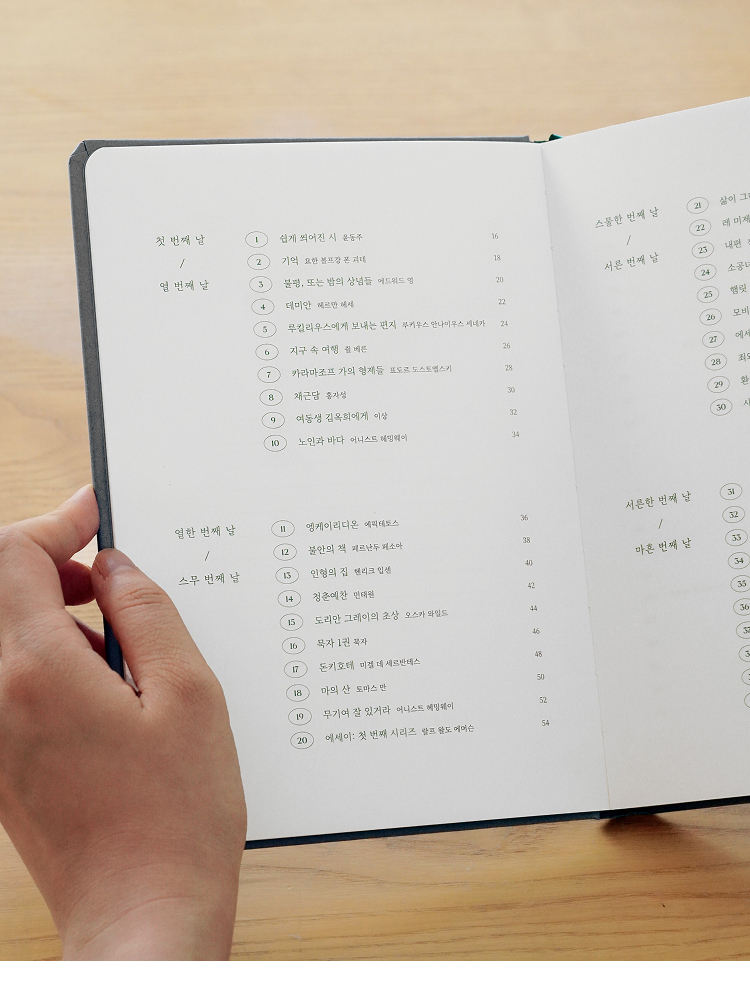 첫 번째 날
/
열 번째 날
1 쉽게 씌어진 시 윤동주 16
2 기억 요한 볼프강 폰 괴테 18
3 불평, 또는 밤의 상념들 에드워드 영 20
4 데미안 헤르만 헤세 22
5 루킬리우스에게 보내는 편지 루키우스 안나이우스 세네카 24
6 지구 속 여행 쥘 베른 26
7 카라마조프 가의 형제들 표도르 도스토옙스키 28
8 채근담 홍자성 30
9 여동생 김옥희에게 이상 32
10 노인과 바다 어니스트 헤밍웨이 34
열한 번째 날
/
스무 번째 날
11 엥케이리디온 에픽테토스 36
12 불안의 책 페르난두 페소아 38
13 인형의 집 헨리크 입센 40
14 청춘예찬 민태원 42
15 도리안 그레이의 초상 오스카 와일드 44
16 묵자 1권 묵자 46
17 돈키호테 미겔 데 세르반테스 48
18 마의 산 토마스 만 50
19 무기여 잘 있거라 어니스트 헤밍웨이 52
20 에세이: 첫 번째 시리즈 랄프 왈도 에머슨 54
스물한 번째 날
/
서른 번째 날
21 삶이
22 레 미제
23 내면
24 소공녀
25 햄릿
26
27
28
29
30
서른한 번째 날
/
마흔 번째 날
31
32
33
34
35
36